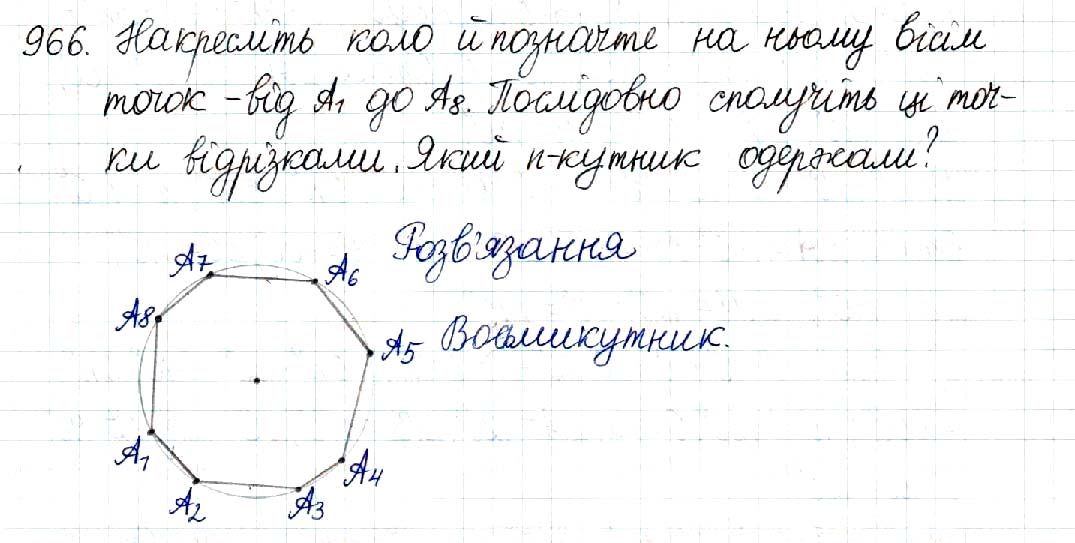 966. Накресліть коло й позначте на ньому вісім
точок - від A₁ до A₈. Послідовно сполучіть ці точ-
ки відрізками. Який n-кутник одержали?
Розв'язання
A₇
A₆
A₈
A₅
Восьмикутник.
A₁
A₄
A₂
A₃